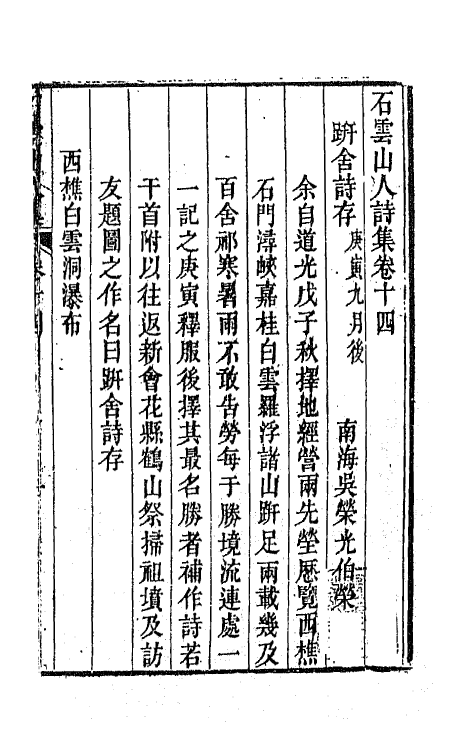 石雲山人詩集卷十四
趼舍詩存庚寅九月後　南海吳榮光伯榮
余自道光戊子秋擇地經營兩先塋歷覽西樵
石門潯峽嘉桂白雲羅浮諸山趼足兩載幾及
百舍祁寒暑雨不敢告勞每于勝境流連處一
一記之庚寅釋服後擇其最名勝者補作詩若
干首附以往返新會花縣鶴山祭掃祖墳及訪
友題圖之作名曰趼舍詩存
西樵白雲洞瀑布